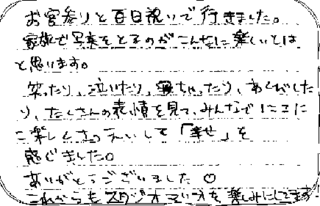 お宮参りと百日祝いで行きました。
家族で写真をとるのがこんなに楽しいとは
と思います。
笑ったり,泣いたり,寝ちゃったり,あくびした
り,たくさんの表情を見て,みんなでにこに
こ楽しくさつえいして「幸せ」を
感じました。
ありがとうございました♡
これからもスタジオマリオを楽しみにしてます!